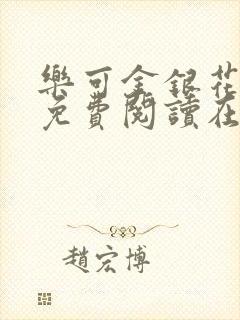 樂可金銀花
免費閱讀在
趙宏博